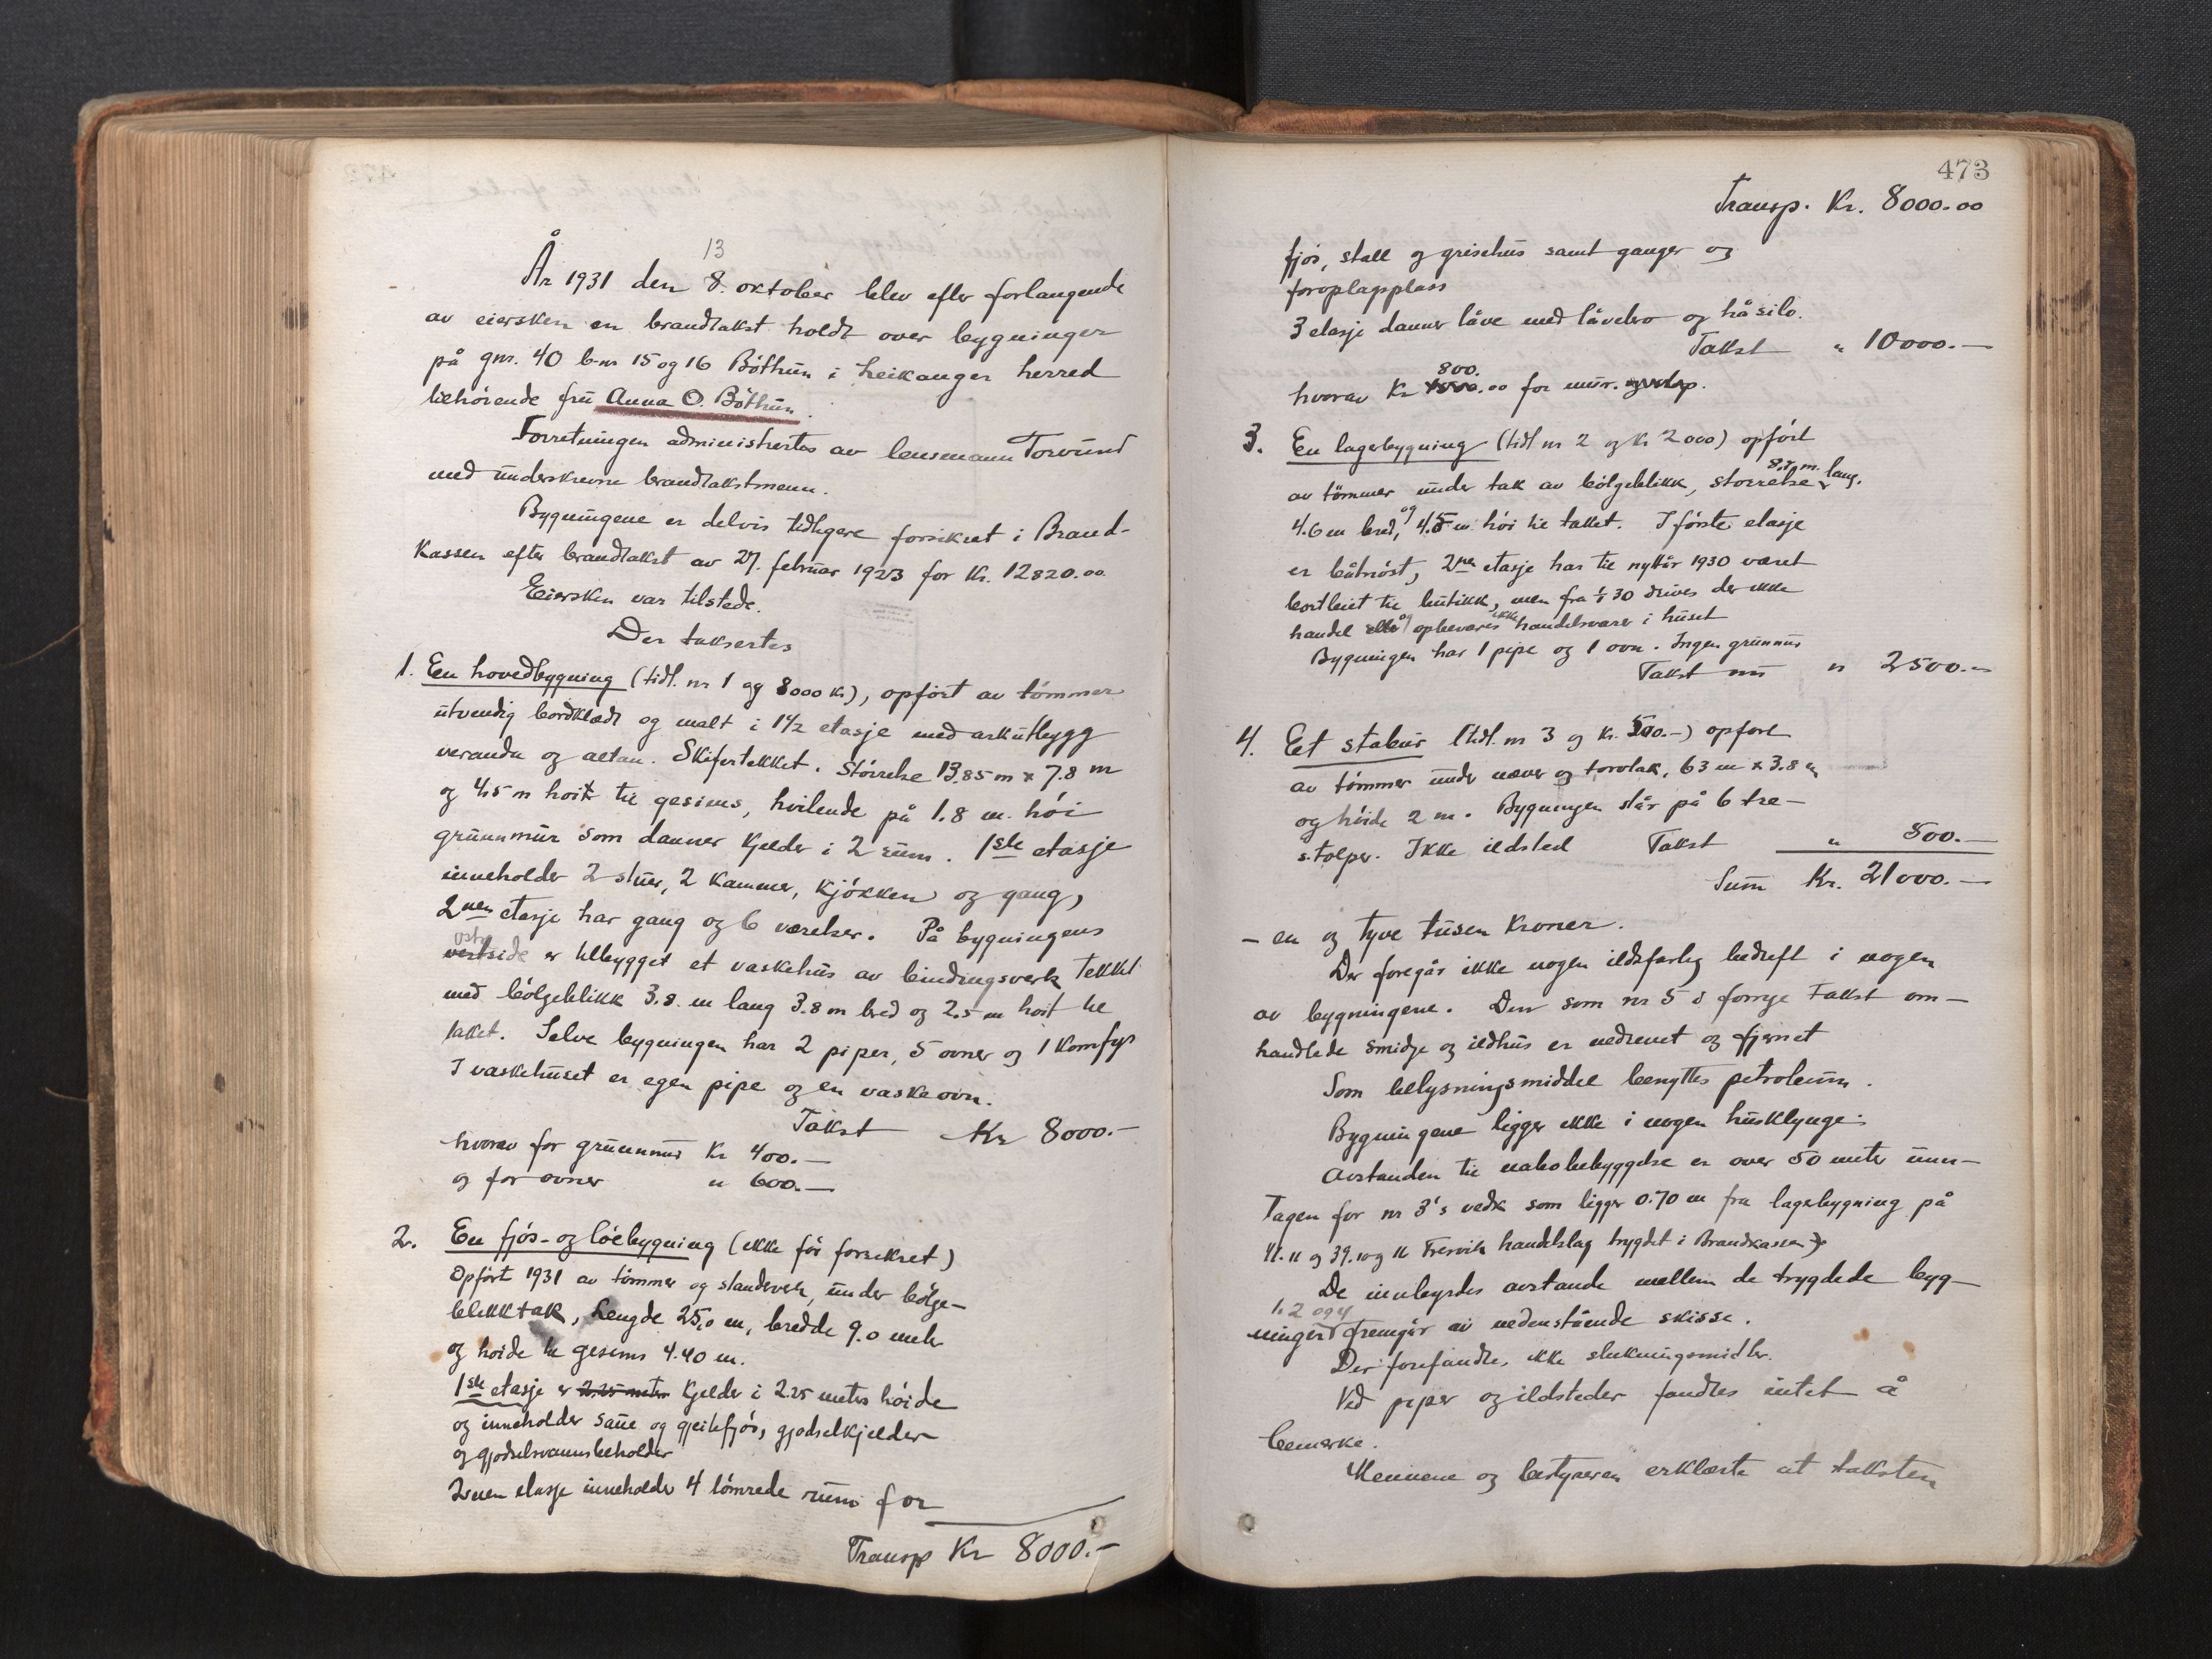 13
År 1931 den 8. oktober blev efter forlangende
av eiersken en brandtakst holdt over bygninger
på gnr. 40 b-nr 15 og 16 Böthun i Leikanger herred
tilhørende fru Anna O. Böthun.
Forretningen administrertes av lensmann Torvund
med underskrevne brandtakstmenn.
Bygningene er delvis tidligere forsikret i Brand-
kassen efter brandtakst av 27. februar 1923 for Kr. 12820.00
Eiersken var tilstede.
Der taksertes
1. En hovedbygning (tidl. nr 1 og 8000 kr), opfört av tömmer
utvendig bordklædt og malt i 1 1/2 etasje med arkutbygg
veranda og altan. Skifertekket. Störrelse 13.85 m x 7.8 m
og 4.5 m hoit til gesims, hvilende på 1.8 m. höi
grunnmur som danner Kjelder i 2 rum. 1ste etasje
inneholder 2 stuer, 2 kammer, kjökken og gang,
2nen etasje har gang og 6 værelser. På bygningens
östre
vestside er tilbygget et vaskehus av bindingsverk tekket
med bölgeblikk 3.8. m lang 3.8 m bred og 2.5 m hoit til
taket. Selve bygningen har 2 piper, 5 ovner og 1 komfyr
I vaskehuset er egen pipe og en vaskeovn.
Takst Kr 8000.-
hvorav for grunnmur Kr 400.—
og for ovner " 600.—
2. En fjös- og löebygning (ikke för forsikret)
Opfört 1931 av tömmer og standverk, under bölge-
blikktak, Lengde 25,0 m, bredde 9.0 meter
og höide til gesims 4.40 m.
1ste etasje er 2.25 meter Kjelder i 2.25 meters höide
og inneholder saue og gjeitefjös, gjødselkjelder
og gjødselvannsbeholder
2nen etasje inneholder 4 tömrede rum for
Transp Kr 8000.-
473
Transp. Kr. 8000.00
fjös, stall og grisehus samt ganger og
foroplagsplass
3 etasje danner låve med låvebro og håsilo.
Takst " 10000.—
800.
hvorav Kr 1000.00 for mur.
3. En lagerbygning (tidl. nr 2 og Kr 2000) opfört
av tömmer under tak av bölgeblikk, störrelse 8.5 m. lang.
4.6 m bred, og 4.5 m. höi til taket. I förste etasje
er båtnöst, 2nen etasje har til nyttår 1930 været
bortleiet til butikk, men fra 1/1 30 drives der ikke
handel eller og opbevares ikke handelsvarer i huset
Bygningen har 1 pipe og 1 ovn. Ingen grunnmur
Takst nu " 2500.—
4. Et stabur (tidl. nr 3 og Kr. 500.-) opfört
av tömmer under næver og torvtak, 6.3 m x 3.8 m
og höide 2 m. Bygningen står på 6 tre-
stolper. Ikke ildsted Takst " 500.—
Sum Kr. 21000.—
- en og tyve tusen Kroner.
Der foregår ikke nogen ildsfarlig bedrift i nogen
av bygningene. Den som nr 5 i forrige takst om-
handlede smidje og ildhus er nedrevet og fjernet
Som belysningsmiddel benyttes petroleum.
Bygningene ligger ikke i nogen husklynge.
Avstanden til nabobebyggelse er over 50 meter unn-
tagen for nr 3's vedk som ligger 0.70 m fra lagerbygning på
41.11 og 39.10 og 11 Fresvik handelslag trygdet i Brandkassen
De innbyrdes avstande mellem de trygdede byg-
1, 2 og 4
ninger fremgår av nedenstående skisse.
Der forefandtes ikke slukningsmidler.
Ved piper og ildsteder fandtes intet å
bemerke.
Mennene og bestyreren erklærte at taksten